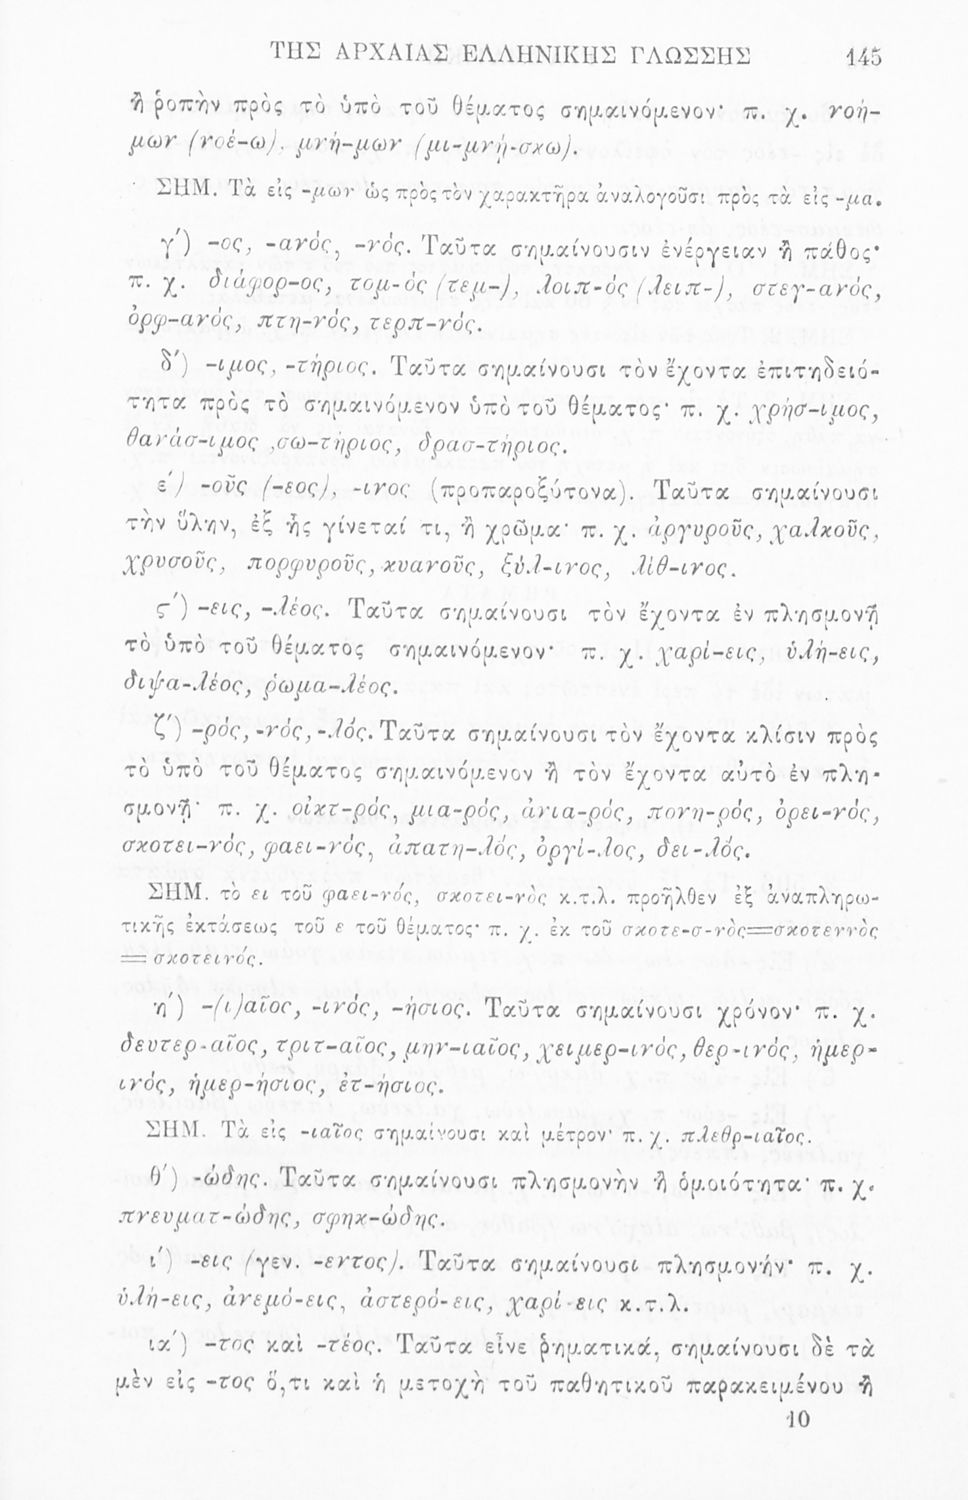 ΤΗΣ ΑΡΧΑΙΑΣ ΕΛΛΗΝΙΚΗΣ ΓΛΩΣΣΗΣ 145
ἢ ῥοπὴν πρὸς τὸ ὑπὸ τοῦ θέματος σημαινόμενον· π. χ. νοή-
μων (νοέ-ω), μνή-μων (μι-μνή-σκω).
ΣΗΜ. Τὰ εἰς -μων ὡς πρὸς τὸν χαρακτῆρα ἀναλογοῦσι πρὸς τὰ εἰς -μα.
γ΄) -ος, -ανός, -νός. Ταῦτα σημαίνουσιν ἐνέργειαν ἢ πάθος·
π. χ. διάφορ-ος, τομ-ός (τεμ-), λοιπ-ός (λειπ-), στεγ-ανός,
ὀρφ-ανός, πτη-νός, τερπ-νός.
δ΄) -ιμος, -τήριος. Ταῦτα σημαίνουσι τὸν ἔχοντα ἐπιτηδειό-
τητα πρὸς τὸ σημαινόμενον ὑπὸ τοῦ θέματος· π. χ. χρήσ-ιμος,
θανάσ-ιμος ,σω-τήριος, δρασ-τήριος.
ε΄) -οῦς (-εος), -ινος (προπαροξύτονα). Ταῦτα σημαίνουσι
τὴν ὕλην, ἐξ ἧς γίνεταί τι, ἢ χρῶμα· π. χ. ἀργυροῦς, χαλκοῦς,
χρυσοῦς, πορφυροῦς, κυανοῦς, ξύλ-ινος, λίθ-ινος.
ς΄) -εις, -λέος. Ταῦτα σημαίνουσι τὸν ἔχοντα ἐν πλησμονῇ
τὸ ὑπὸ τοῦ θέματος σημαινόμενον· π. χ. χαρί-εις, ὑλή-εις,
διψα-λέος, ῥωμα-λέος.
ζ΄) -ρός, -νός, -λός. Ταῦτα σημαίνουσι τὸν ἔχοντα κλίσιν πρὸς
τὸ ὑπὸ τοῦ θέματος σημαινόμενον ἢ τὸν ἔχοντα αὐτὸ ἐν πλη-
σμονῇ· π. χ. οἰκτ-ρός, μια-ρός, ἀνια-ρός, πονη-ρός, ὀρει-νός,
σκοτει-νός, φαει-νός, ἀπατη-λός, ὀργί-λος, δει-λός.
ΣΗΜ. τὸ ει τοῦ φαει-νός, σκοτει-νὸς κ.τ.λ. προῆλθεν ἐξ ἀναπληρω-
τικῆς ἐκτάσεως τοῦ ε τοῦ θέματος· π. χ. ἐκ τοῦ σκοτε-σ-νὸς=σκοτεννὸς
= σκοτεινός.
η΄) -(ι)αῖος, -ινός, -ήσιος. Ταῦτα σημαίνουσι χρόνον· π. χ.
δευτερ-αῖος, τριτ-αῖος, μην-ιαῖος, χειμερ-ινός, θερ-ινός, ἡμερ-
ινός, ἡμερ-ήσιος, ἐτ-ήσιος.
ΣΗΜ. Τὰ εἰς -ιαῖος σημαίνουσι καὶ μέτρον· π. χ. πλεθρ-ιαῖος.
θ΄) -ώδης. Ταῦτα σημαίνουσι πλησμονὴν ἢ ὁμοιότητα· π. χ.
πνευματ-ώδης, σφηκ-ώδης.
ι΄) -εις (γεν. -εντος). Ταῦτα σημαίνουσι πλησμονήν· π. χ.
ὑλή-εις, ἀνεμό-εις, ἀστερό-εις, χαρί-εις κ.τ.λ.
ια΄) -τος καὶ -τέος. Ταῦτα εἶνε ῥηματικά, σημαίνουσι δὲ τὰ
μὲν εἰς -τος ὅ,τι καὶ ἡ μετοχὴ τοῦ παθητικοῦ παρακειμένου ἢ
10